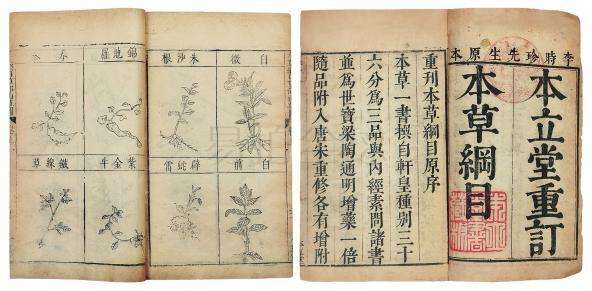 李時珍先生原本
本立堂重訂
本草綱目
重刊本草綱目原序
本草一書撰自軒皇種別三十
六分為三品與內經素問諸書
並為世寶梁陶通明增藥一倍
隨品附入唐宋重修各有增附
白薇
朱沙根
白前
辟虺雷
錦地羅
紫金牛
鐵線草